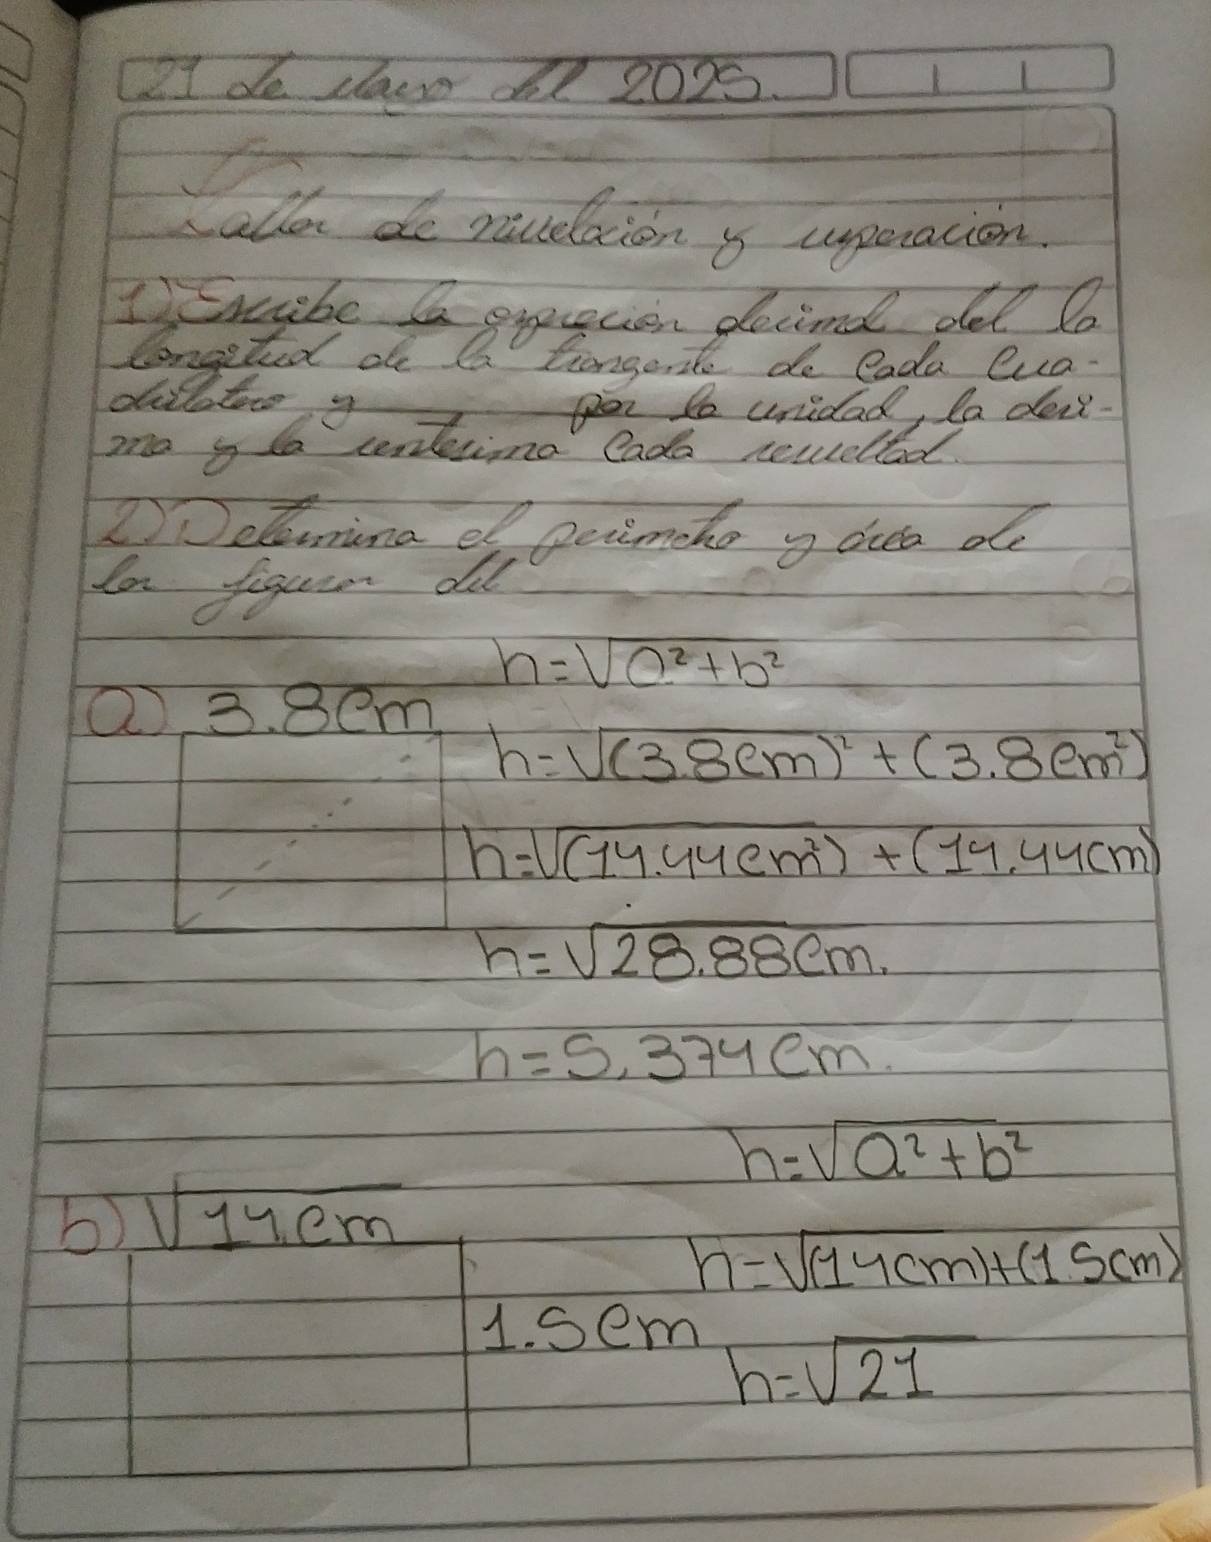 21 de Mayo del 2025.
Taller de nivelación y superación.
1) Escribe la expreción decimal del la
longitud de la de cada cua-
drilatero y por la unidad, la deci-
ma y la centecima cada
2) Determina el perimetro y área de
las figuras del
h=√a²+b²
a) 3.8cm
h=√(3.8cm)²+(3.8cm²)
h=√(14.44cm²)+(14.44cm)
h=√28.88cm.
h=5,374cm.
h=√a²+b²
b) √14cm
h=√(14cm)+(1.5cm)
1.5cm
h=√21